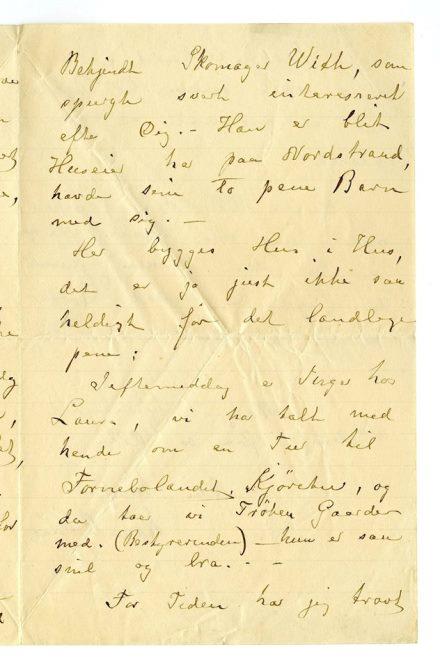 Bekjendt Skomager With, som
spurgte svært interesseret
efter Dig. – Han er blit
Huseier her paa Nordstrand,
havde sine to pene Barn
med sig. –
Her bygges Hus i Hus,
det er jo just ikke saa
heldigt for det landlige
pene;
Ieftermiddag er Inger hos
Laura, vi har talt med
hende om en Tur til
Fornebolandet, Kjøretur, og
da tar vi Frøken Gaarder
med. (Bestyrerinden) – hun er saa
snil og bra. –
For Tiden har jeg travlt